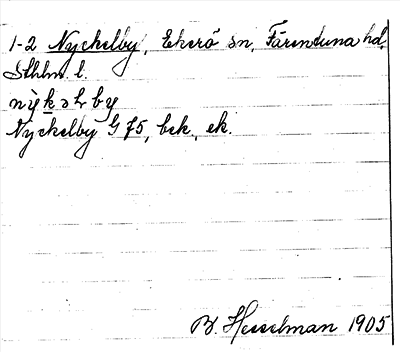 1-2 Nyckelby, Ekerö sn, Färentuna hd,
Sthlm l.
Nyckelby G 75, bek., ek.
B. Hesselman 1905